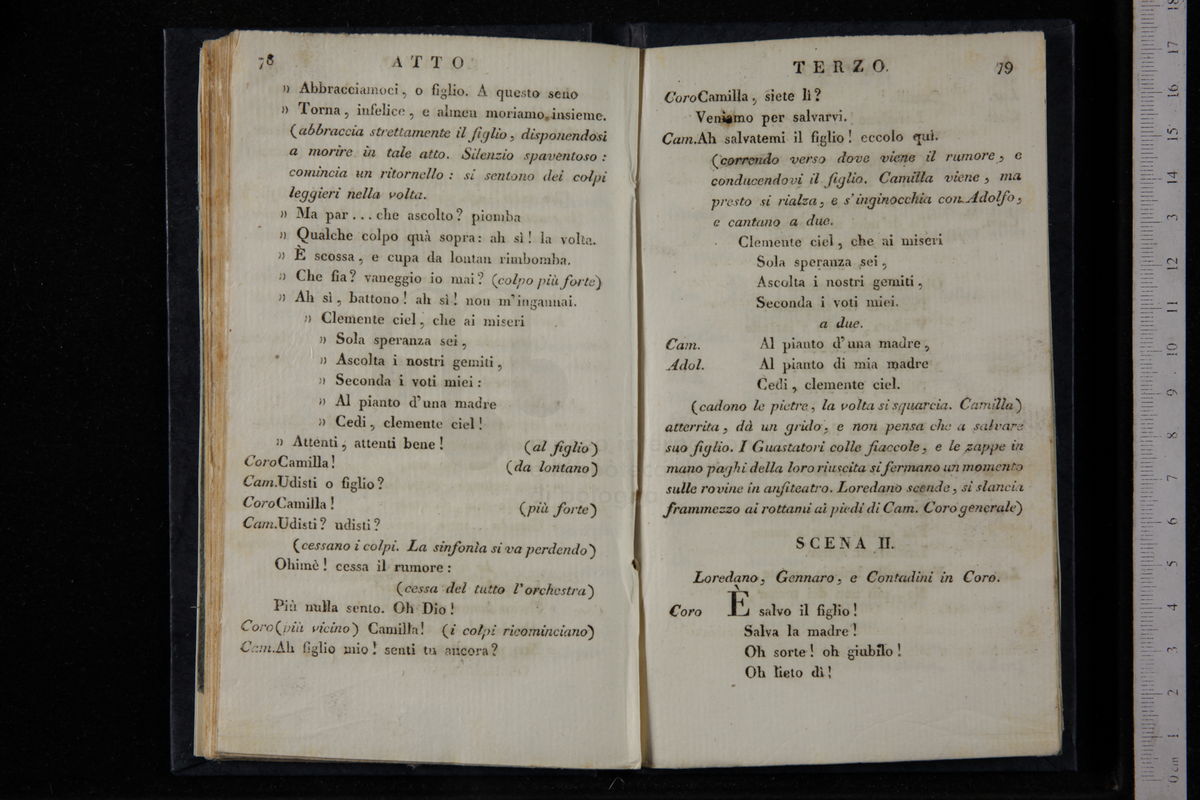 78 ATTO
» Abbracciamoci, o figlio. A questo seno
» Torna, infelice, e almen moriamo insieme.
(abbraccia strettamente il figlio, disponendosi
a morire in tale atto. Silenzio spaventoso:
comincia un ritornello: si sentono dei colpi
leggieri nella volta.
» Ma par... che ascolto? piomba
» Qualche colpo quà sopra: ah sì! la volta.
» È scossa, e cupa da lontan rimbomba.
» Che fia? vaneggio io mai? (colpo più forte)
» Ah sì, battono! ah sì! non m'ingannai.
» Clemente ciel, che ai miseri
» Sola speranza sei,
» Ascolta i nostri gemiti,
» Seconda i voti miei:
» Al pianto d'una madre
» Cedi, clemente ciel!
» Attenti, attenti bene! (al figlio)
Coro Camilla! (da lontano)
Cam. Udisti o figlio?
Coro Camilla! (più forte)
Cam. Udisti? udisti?
(cessano i colpi. La sinfonìa si va perdendo)
Ohimè! cessa il rumore:
(cessa del tutto l'orchestra)
Più nulla sento. Oh Dio!
Coro (più vicino) Camilla! (i colpi ricominciano)
Cam. Ah figlio mio! senti tu ancora?
TERZO. 79
Coro Camilla, siete lì?
Veniamo per salvarvi.
Cam. Ah salvatemi il figlio! eccolo quì.
(correndo verso dove viene il rumore, e
conducendovi il figlio. Camilla viene, ma
presto si rialza, e s'inginocchia con Adolfo,
e cantano a due.
Clemente ciel, che ai miseri
Sola speranza sei,
Ascolta i nostri gemiti,
Seconda i voti miei.
a due.
Cam. Al pianto d'una madre,
Adol. Al pianto di mia madre
Cedi, clemente ciel.
(cadono le pietre, la volta si squarcia. Camilla)
atterrita, dà un grido, e non pensa che a salvare
suo figlio. I Guastatori colle fiaccole, e le zappe in
mano paghi della loro riuscita si fermano un momento
sulle rovine in anfiteatro. Loredano scende, si slancia
frammezzo ai rottami ai piedi di Cam. Coro generale)
SCENA II.
Loredano, Gennaro, e Contadini in Coro.
Coro È salvo il figlio!
Salva la madre!
Oh sorte! oh giubilo!
Oh lieto dì!